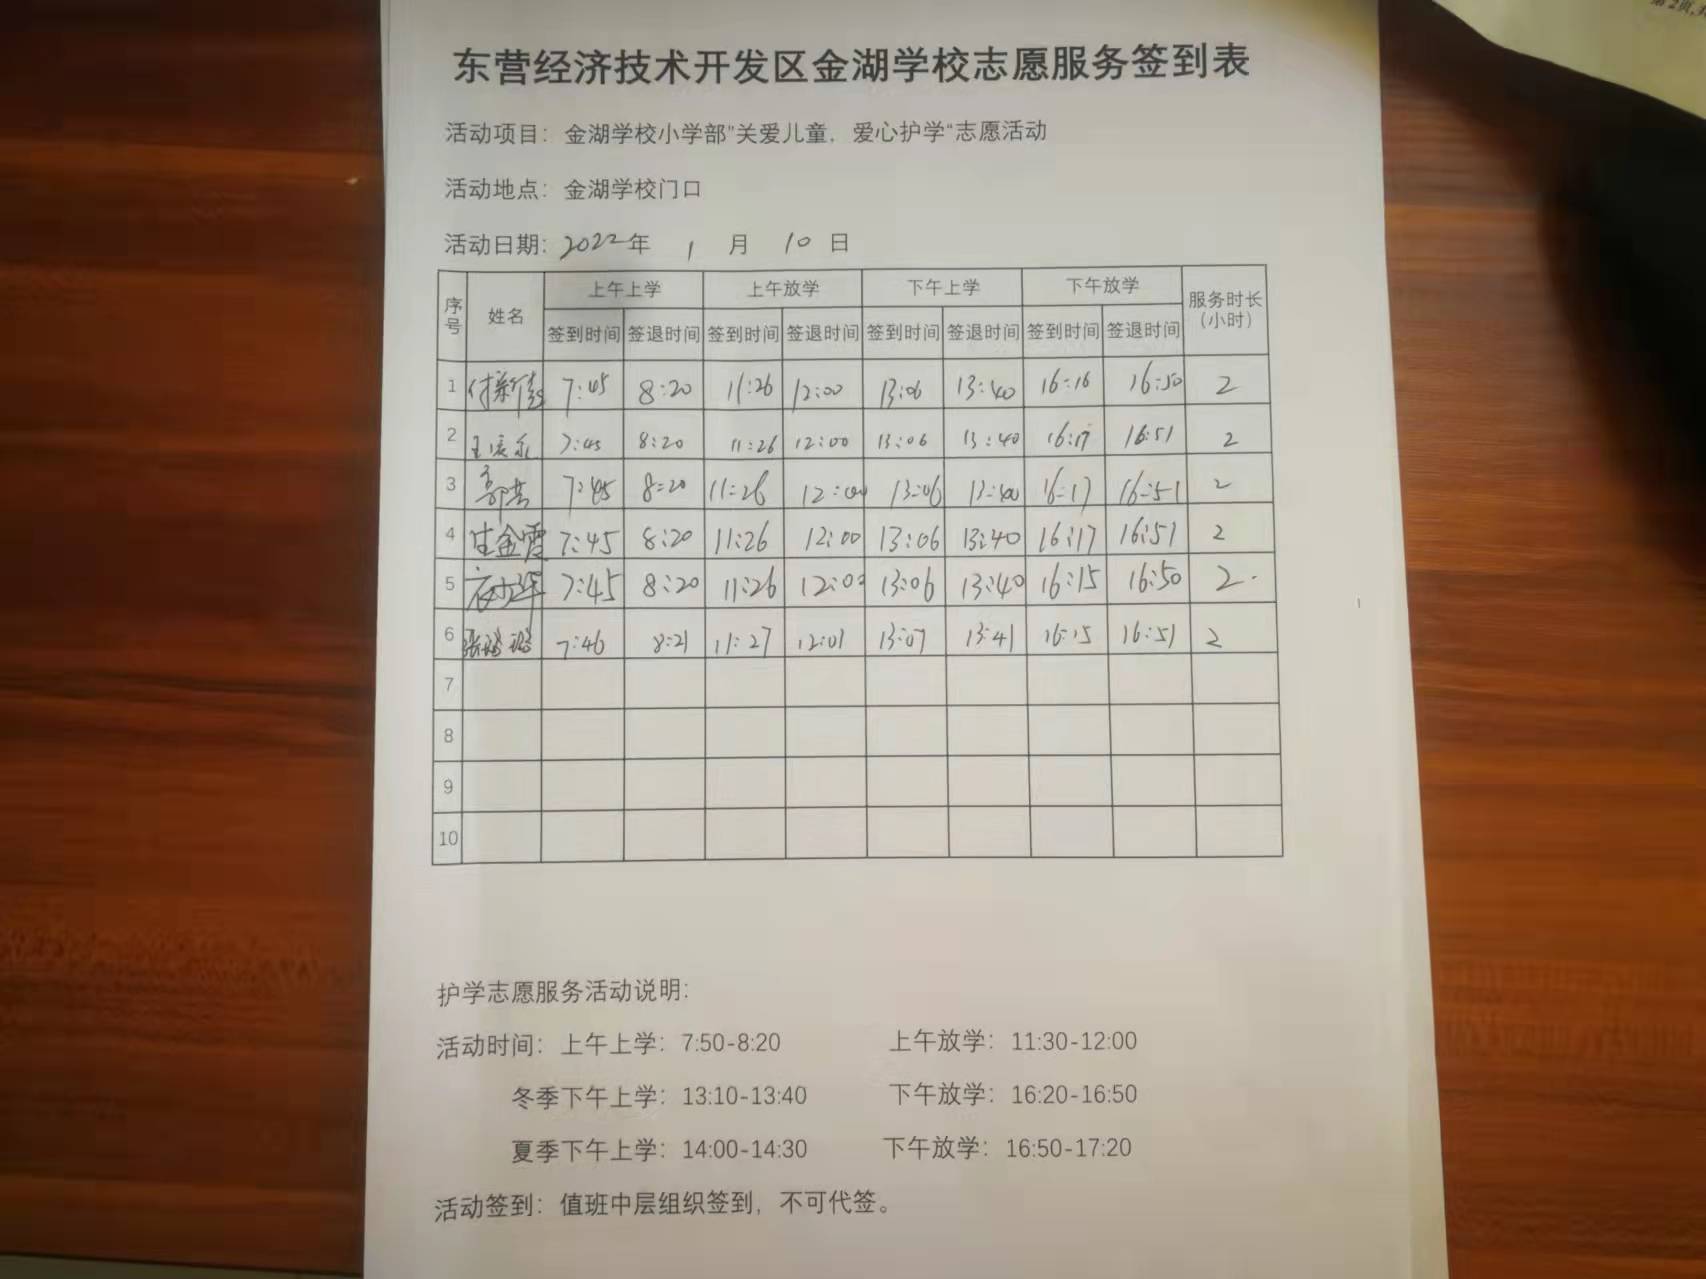 第2页,共
东营经济技术开发区金湖学校志愿服务签到表
活动项目：金湖学校小学部"关爱儿童，爱心护学"志愿活动
活动地点：金湖学校门口
活动日期：2022年 1 月 10 日
序号 姓名 上午上学 上午放学 下午上学 下午放学 服务时长（小时）
签到时间 签退时间 签到时间 签退时间 签到时间 签退时间 签到时间 签退时间
1 7:45 8:20 11:26 12:00 13:06 13:40 16:16 16:50 2
2 7:45 8:20 11:26 12:00 13:06 13:40 16:17 16:51 2
3 7:45 8:20 11:26 12:00 13:06 13:40 16:17 16:51 2
4 甘金霞 7:45 8:20 11:26 12:00 13:06 13:40 16:17 16:51 2
5 7:45 8:20 11:26 12:03 13:06 13:40 16:15 16:50 2
6 7:46 8:21 11:27 12:01 13:07 13:41 16:15 16:51 2
7
8
9
10
护学志愿服务活动说明：
活动时间：上午上学：7:50-8:20 上午放学：11:30-12:00
冬季下午上学：13:10-13:40 下午放学：16:20-16:50
夏季下午上学：14:00-14:30 下午放学：16:50-17:20
活动签到：值班中层组织签到，不可代签。